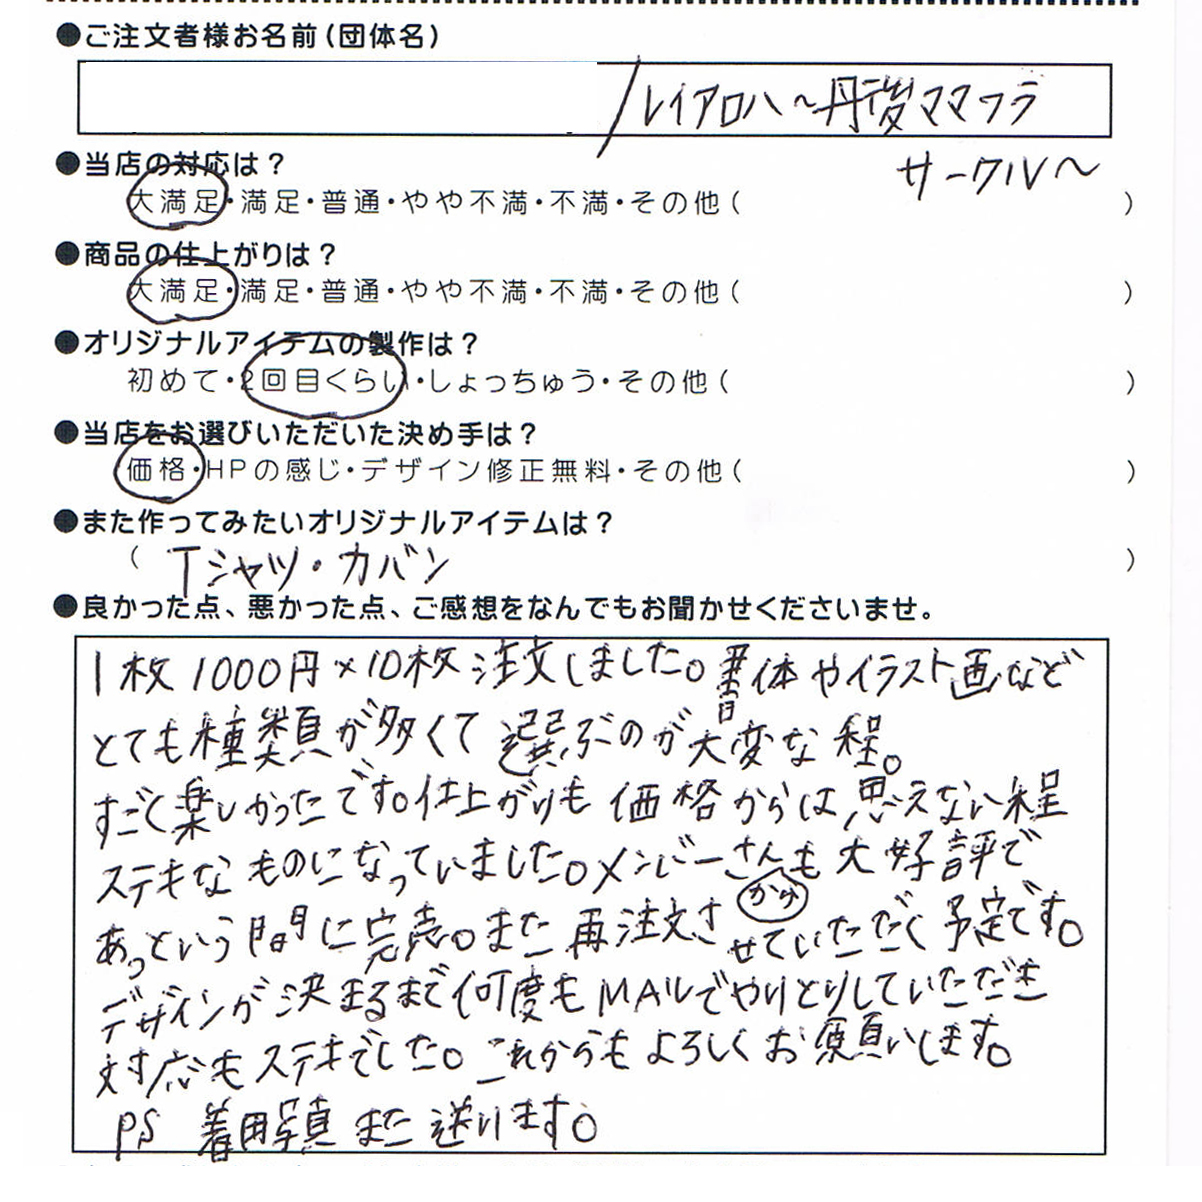 ●ご注文者様お名前(団体名)
/レイアロハ～丹後ママフラ
サークル～
●当店の対応は?
大満足・満足・普通・やや不満・不満・その他( )
●商品の仕上がりは?
大満足・満足・普通・やや不満・不満・その他( )
●オリジナルアイテムの製作は?
初めて・2回目くらい・しょっちゅう・その他( )
●当店をお選びいただいた決め手は?
価格・HPの感じ・デザイン修正無料・その他( )
●また作ってみたいオリジナルアイテムは?
( Tシャツ・カバン )
●良かった点、悪かった点、ご感想をなんでもお聞かせくださいませ。
1枚1000円×10枚注文しました。書体やイラスト画など
とても種類が多くて選ぶのが大変な程。
すごく楽しかったです。仕上がりも価格からは思えない程
ステキなものになっていました。メンバーさんも大好評で
あっという間に完売。また再注文させていただく予定です。
デザインが決まるまで何度もMAILでやりとりしていただき
対応もステキでした。これからもよろしくお願いします。
PS 着用写真また送ります。